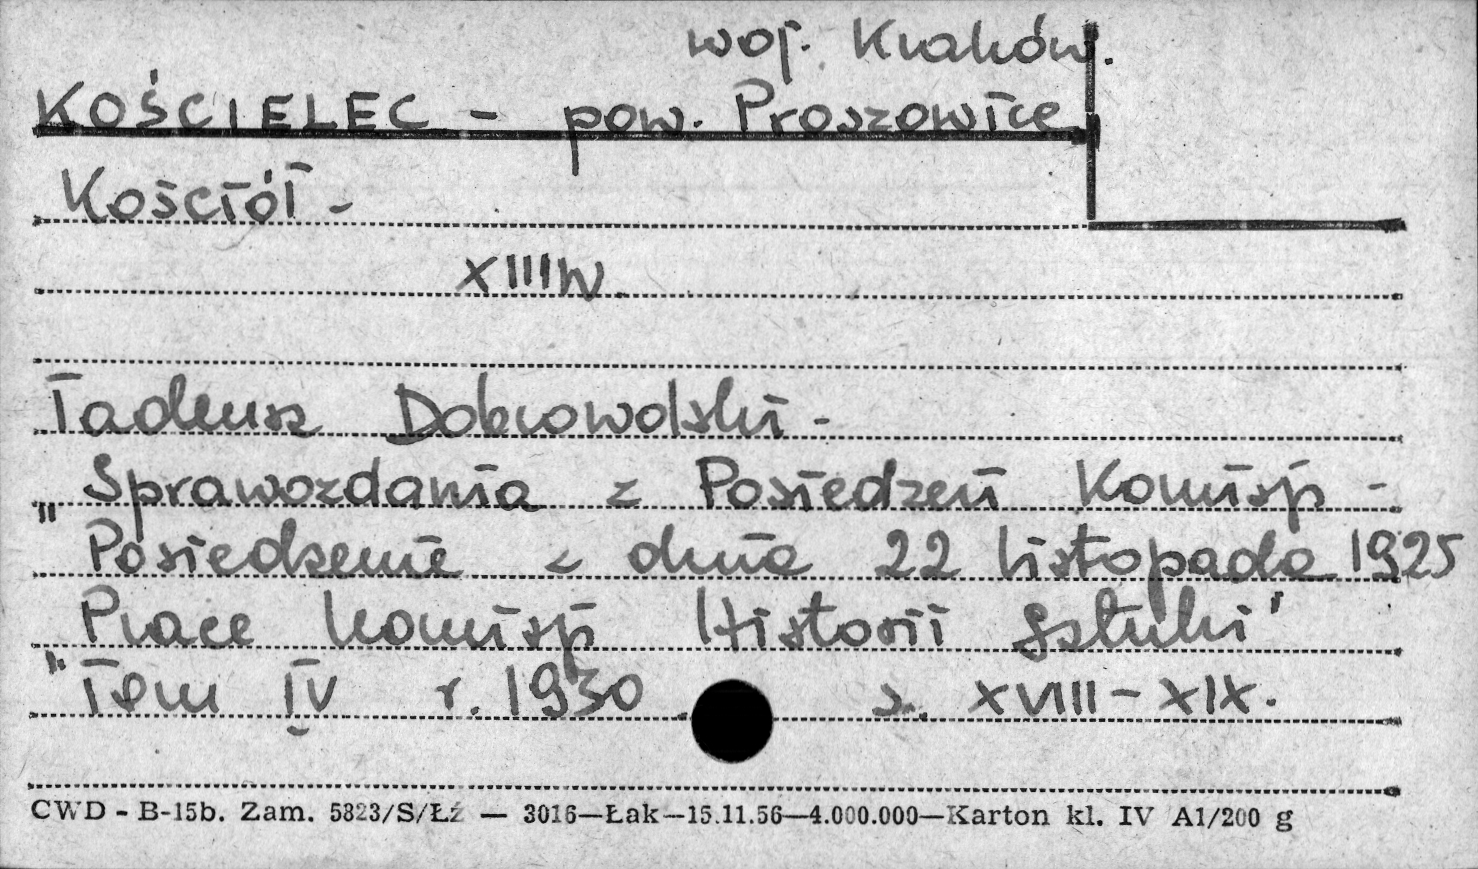 woj. Kraków.
KOŚCIELEC - pow. Proszowice
Kościół -
XIII w.
Tadeusz Dobrowolski -
Sprawozdania z Posiedzeń Komisji -
"Posiedzenie z dnia 22 listopada 1925
Prace Komisji Historii Sztuki"
"Tom IV r. 1930. s. XVIII - XIX.
CWD - B-15b. Zam. 5823/S/Łź — 3016—Łak—15.11.56—4.000.000—Karton kl. IV A1/200 g